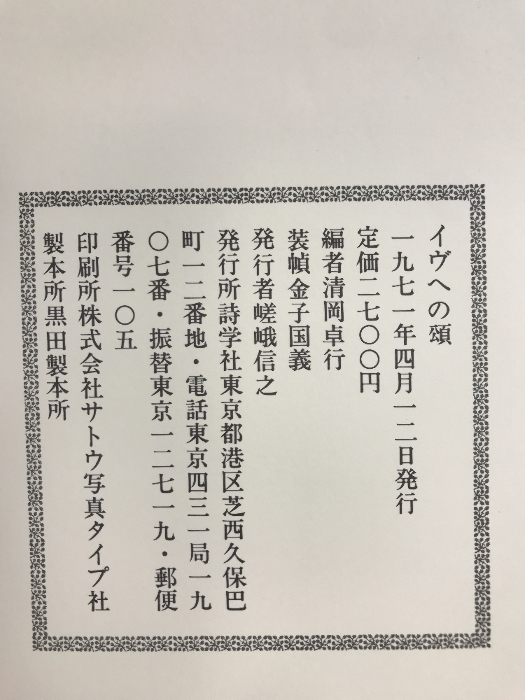 イヴへの頌
一九七一年四月一二日発行
定価二七〇〇円
編者清岡卓行
装幀金子国義
発行者嵯峨信之
発行所詩学社東京都港区芝西久保巴
町一二番地・電話東京四三一局一九
〇七番・振替東京一二七一九・郵便
番号一〇五
印刷所株式会社サトウ写真タイプ社
製本所黒田製本所